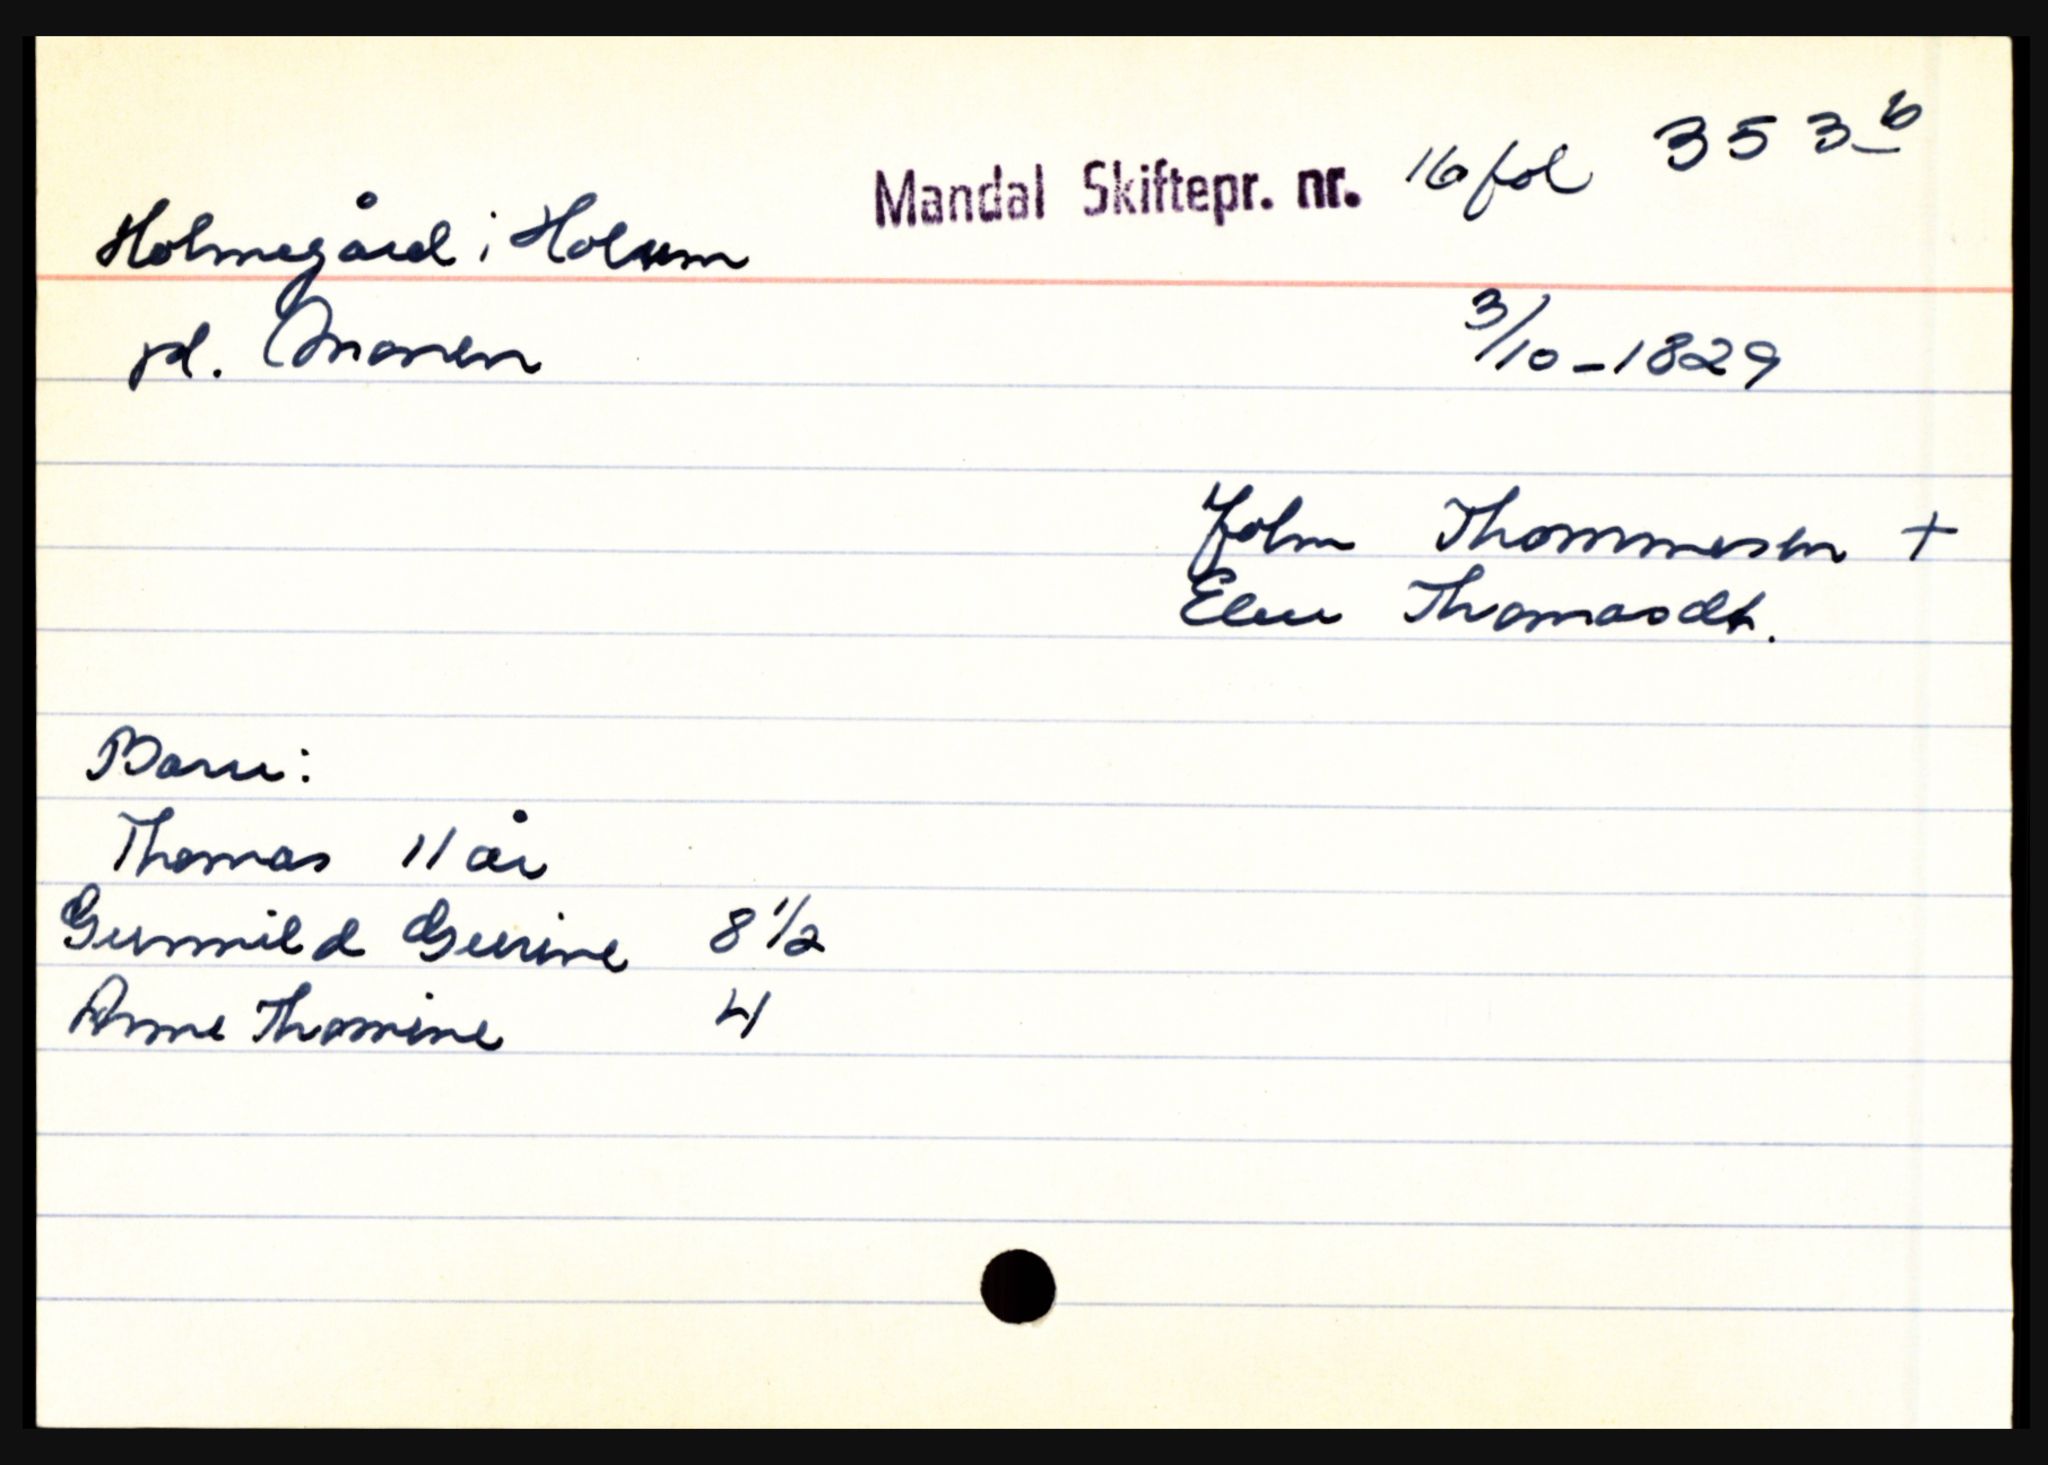 Mandal Skiftepr. nr. 16 fol 353 b
Holmegård i Holum
pl. Monen
3/10 - 1829
John Thommesen +
Elen Thomasdt.
Barn:
Thomas 11 år
Gunnild Gurine 8 1/2
Anne Thomine 4